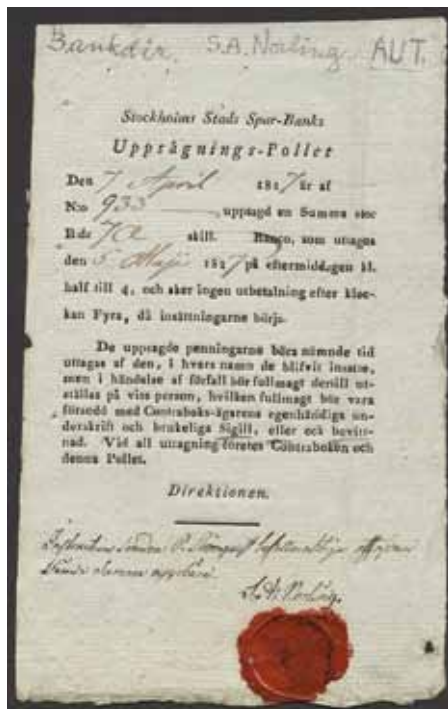 Bankdir. S.A. Norling. AUT.
Stockholms Stads Spar-Banks
Uppsägnings-Pollet
Den 7 April 1827 är af
N:o 933 uppsagd en Summa stor
R:dr 72 skill. Banco, som uttages
den 5 Maji 1827 på eftermiddagen kl.
half till 4, och sker ingen utbetalning efter kloc-
kan Fyra, då insättningarne börja.
De uppsagde penningarne böra nämnde tid
uttagas af den, i hvars namn de blifvit insatte,
men i händelse af förfall bör fullmagt dertill ut-
ställas på viss person, hvilken fullmagt bör vara
försedd med Contraboks-ägarens egenhändiga un-
derskrift och brukeliga Sigill, eller ock bevitt-
nad. Vid all uttagning företes Contraboken och
denna Pollet.
Direktionen.
S. A. Norling.